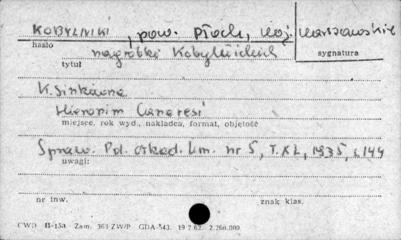 KOBYLNIKI, pow. Płock, woj. warszawskie
hasło
sygnatura
nagrobki Kobylnickich
tytuł
K. Sinkówna
Hieronim Canavesi
miejsce, rok wyd., nakładca, format, objętość
Spraw. Pol. Akad. Um. nr 5, T. XL, 1935, s. 144
uwagi:
nr inw.
znak klas.
CWD II-15a Zam. 361 ZW/P GDA-543. 19 7.62. 2.200.000